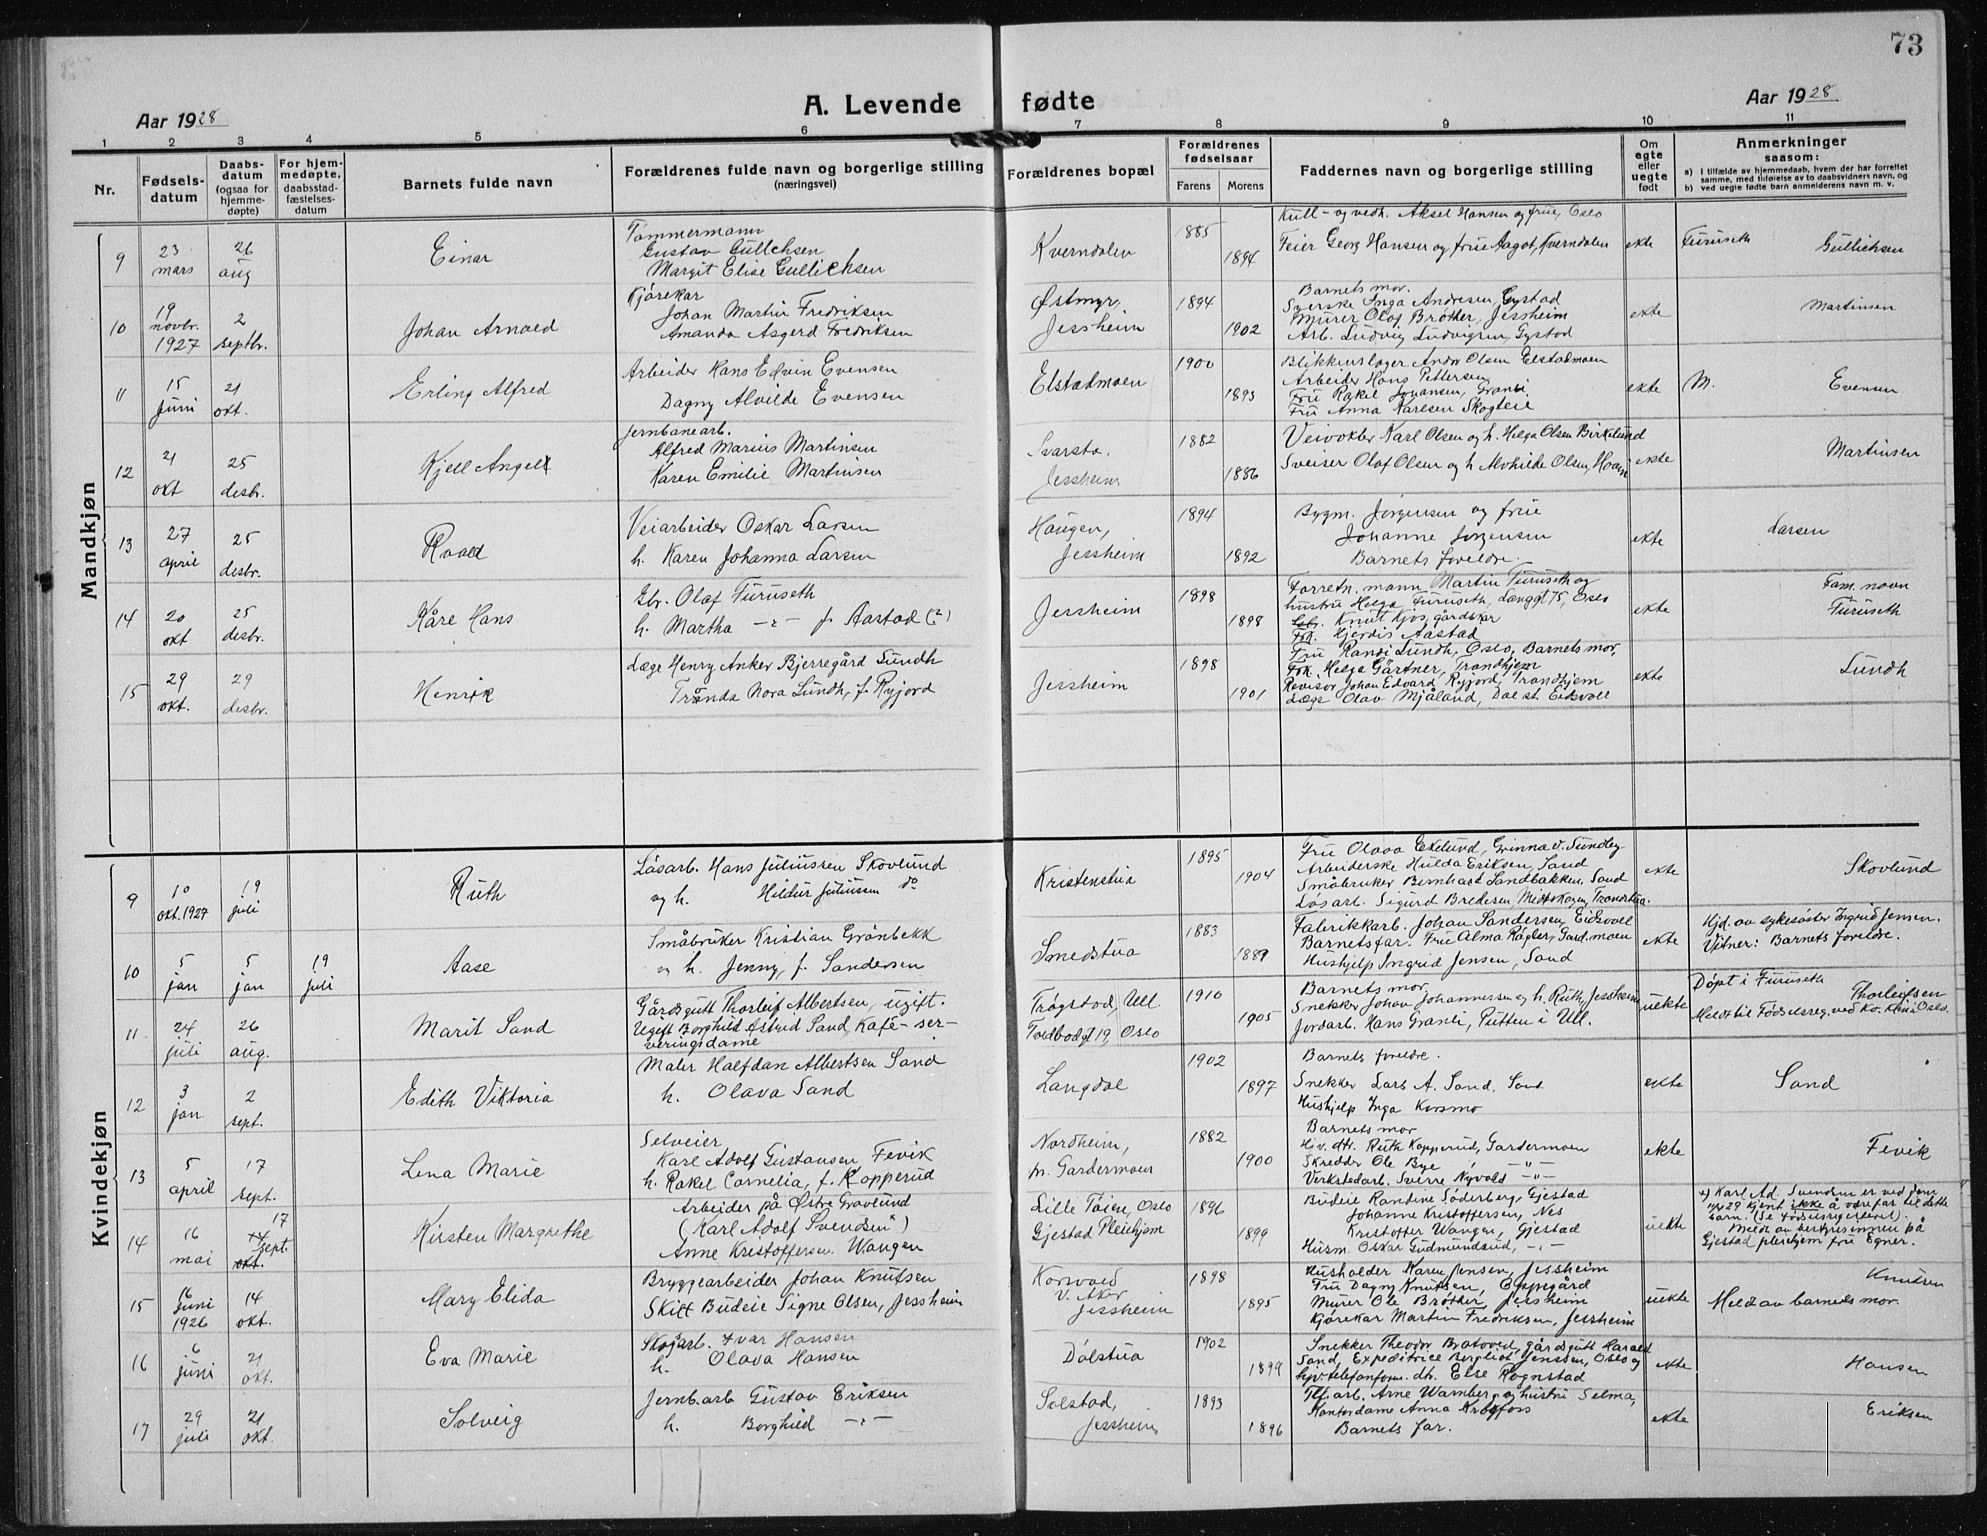 73
Aar 1928
A. Levende fødte
Aar 1928
1 2 3 4 5 6 7 8 9 10 11
Nr.
Fødsels-
datum
Daabs-
datum
(ogsaa for
hjemme-
døpte)
For hjem-
medøpte,
daabsstad-
fæstelses-
datum
Barnets fulde navn
Forældrenes fulde navn og borgerlige stilling
(næringsvei)
Forældrenes bopæl
Forældrenes
fødselsaar
Farens Morens
Faddernes navn og borgerlige stilling
Om
egte
eller
uegte
født
Anmerkninger
saasom:
a) i tilfælde av hjemmedaab, hvem der har forrettet
samme, med tilføielse av to daabsvidners navn, og
b) ved uegte fødte barn anmelderens navn m. v.
Mandkjøn
9
23
mars
26
aug
Einar
Tømmermann
Gustav Gullichsen
Margit Elise Gullichsen
Kverndalen
1885
1894
Kull- og vedh. Aksel Hansen og frue, Oslo
Feier Georg Hansen og frue Aagot, Kverndalen
ekte
Furuseth
Gullichsen
10
19
novbr.
1927
2
septbr.
Johan Arnold
Kjørekar
Johan Martin Fredriksen
Amanda Asgerd Fredriksen
Østmyr,
Jessheim
1894
1902
Barnets mor.
Syerske Inga Andresen, Gystad
Murer Olaf Brøther, Jessheim
Arb. Ludvig Ludvigsen, Gystad
ekte
Martinsen
11
15
juni
21
okt.
Erling Alfred
Arbeider Hans Edvin Evensen
Dagny Alvilde Evensen
Elstadmoen
1900
1893
Blikkenslager Andr. Olsen Elstadmoen
Arbeider Hans Pettersen
Fru Rakel Johansen, Granli
Fru Anna Karlsen Skogteie
ekte
M.
Evensen
12
21
okt
25
desbr.
Kjell Angell
Jernbanearb.
Alfred Marius Martinsen
Karen Emilie Martinsen
Svarsta.
Jessheim
1882
1886
Veivokter Karl Olsen og h. Helga Olsen Birkelund
Sveiser Olaf Olsen og h Alvhilde Olsen, Hovin
ekte
Martinsen
13
27
april
25
desbr.
Roald
Veiarbeider Oskar Larsen
h. Karen Johanna Larsen
Haugen,
Jessheim
1894
1892
Bygm. Jørgensen og frue
Johanne Jørgensen
Barnets foreldre.
ekte
Larsen
14
20
okt
25
desbr.
Kåre Hans
Gbr. Olaf Furuseth
h. Martha —"— f. Aastad (?)
Jessheim
1898
1898
Forretn. mann Martin Furuseth og
hustru Helga Furuseth, Langgt 75, Oslo
Gbr. Knut Kjos, gårdskar
Frk. Hjørdis Aastad
ekte
Fam. navn
Furuseth
15
29
okt.
29
desbr.
Henrik
Læge Henry Anker Bjerregård Sundh
Tronda Nora Sundh, f. Ryjord
Jessheim
1898
1901
Fru Randi Lundh, Oslo, Barnets mor,
Frk. Helga Gärtner, Trondhjem
Revisor Johan Edvard Ryjord, Trondhjem
Læge Olav Mjåland, Dal st. Eidsvoll
ekte
Sundh
Kvindekjøn
9
10
okt. 1927
19
juli
Ruth
Løsarb. Hans Juliussen Skovlund
og h. Hildur Juliussen do
Kristenstua
1895
1904
Fru Olava Eklund, Grinna v. Sundby
Arbeiderske Hulda Eriksen, Sand
Småbruker Bernhard Sandbakken, Sand
Løsarb. Sigurd Bredesen Medskogen, Tranerstua.
ekte
Skovlund
10
5
jan
5
jan
19
juli
Aase
Småbruker Kristian Grønbekk
og h. Jenny, f. Sandersen
Smedstua
1883
1889
Fabrikkarb. Johan Sandersen, Eidsvoll
Barnets far. Frue Alma Rågler, Gard.moen
Hushjelp Ingrid Jensen, Sand
ekte
Hjd. av sykesøster Ingrid Jensen.
Vitner: Barnets foreldre.
11
24
juli
26
aug.
Marit Sand
Gårdsgutt Thorleif Albertsen, ugift.
Ugift Borghild Astrid Sand, Kafe-ser-
veringsdame
Trøgstad, Ull.
Toldbodgt 19, Oslo
1910
1905
Barnets mor
Snekker Johan Johannessen og h. Ruth, Jessheim
Jordarb. Hans Granli, Putten i Ull.
uekte
Døpt i Furuseth
Thorleifsen
Meldt til Fødselsreg. ved Kv. klinik Oslo.
12
3
jan
2
sept.
Edith Viktoria
Maler Halfdan Albertsen Sand
h. Olava Sand
Langdal
1902
1897
Barnets foreldre.
Snekker Lars A. Sand, Sand
Hushjelp Inga Korsmo
ekte
Sand
13
5
april
17
sept.
Lena Marie
Selveier
Karl Adolf Gustavsen Fevik
h. Rakel Cornelia, f. Kopperud
Nordheim,
pr. Gardermoen
1882
1900
Barnets mor
Hjv. dtr. Ruth Kopperud, Gardermoen
Skredder Ole Bye —"—
Verkstedarb. Sverre Nyvold —"—
ekte
Fevik
14
16
mai
17
sept.
okt.
Kirsten Margrethe
Arbeider på Østre Gravlund
(Karl Adolf Svendsen x)
Anne Kristoffersen Wangen
Lille Tøien, Oslo
Gjestad Pleiehjem
1896
1899
Budeie Randine Söderberg, Gjestad
Johanne Kristoffersen, Nes
Kristoffer Wangen, Gjestad
Husm. Oskar Gudmundsud, —"—
uekte
x) Karl Ad. Svendsen er ved dom
29 kjent ikke å være far til dette
barn. (Se Fødselsregisteret).
Meldt av bestyrerinnen på
Gjestad pleiehjem fru Egner.
15
16
juni
1926
14
okt.
Mary Elida
Bryggearbeider Johan Knutsen
Skilt Budeie Signe Olsen, Jessheim
Korsvold
V. Aker
Jessheim
1898
1895
Husholder Karen Jensen, Jessheim
Fru Dagny Knutsen, Oppegård
Murer Ole Brøther, Jessheim
Kjørekar Martin Fredriksen, Jessheim
uekte
Knutsen
Meldt av barnets mor.
16
6
juni
21
okt.
Eva Marie
Skojarb. Ivar Hansen
h. Olava Hansen
Dølstua
1902
1899
Snekker Theodor Bratvold, gårdsgutt Harald
Sand, Expeditrice Bergliot Jenssen, Oslo og
hjv. telefonform. dtr. Else Rognstad
ekte
Hansen
17
29
juli
21
okt.
Solveig
Jernb.arb Gustav Eriksen
h. Borghild —"—
Solstad,
Jessheim
1893
1896
Tlf. arb. Arne Warnberg og hustru Selma,
Kontordame Anna
Barnets far.
ekte
Eriksen